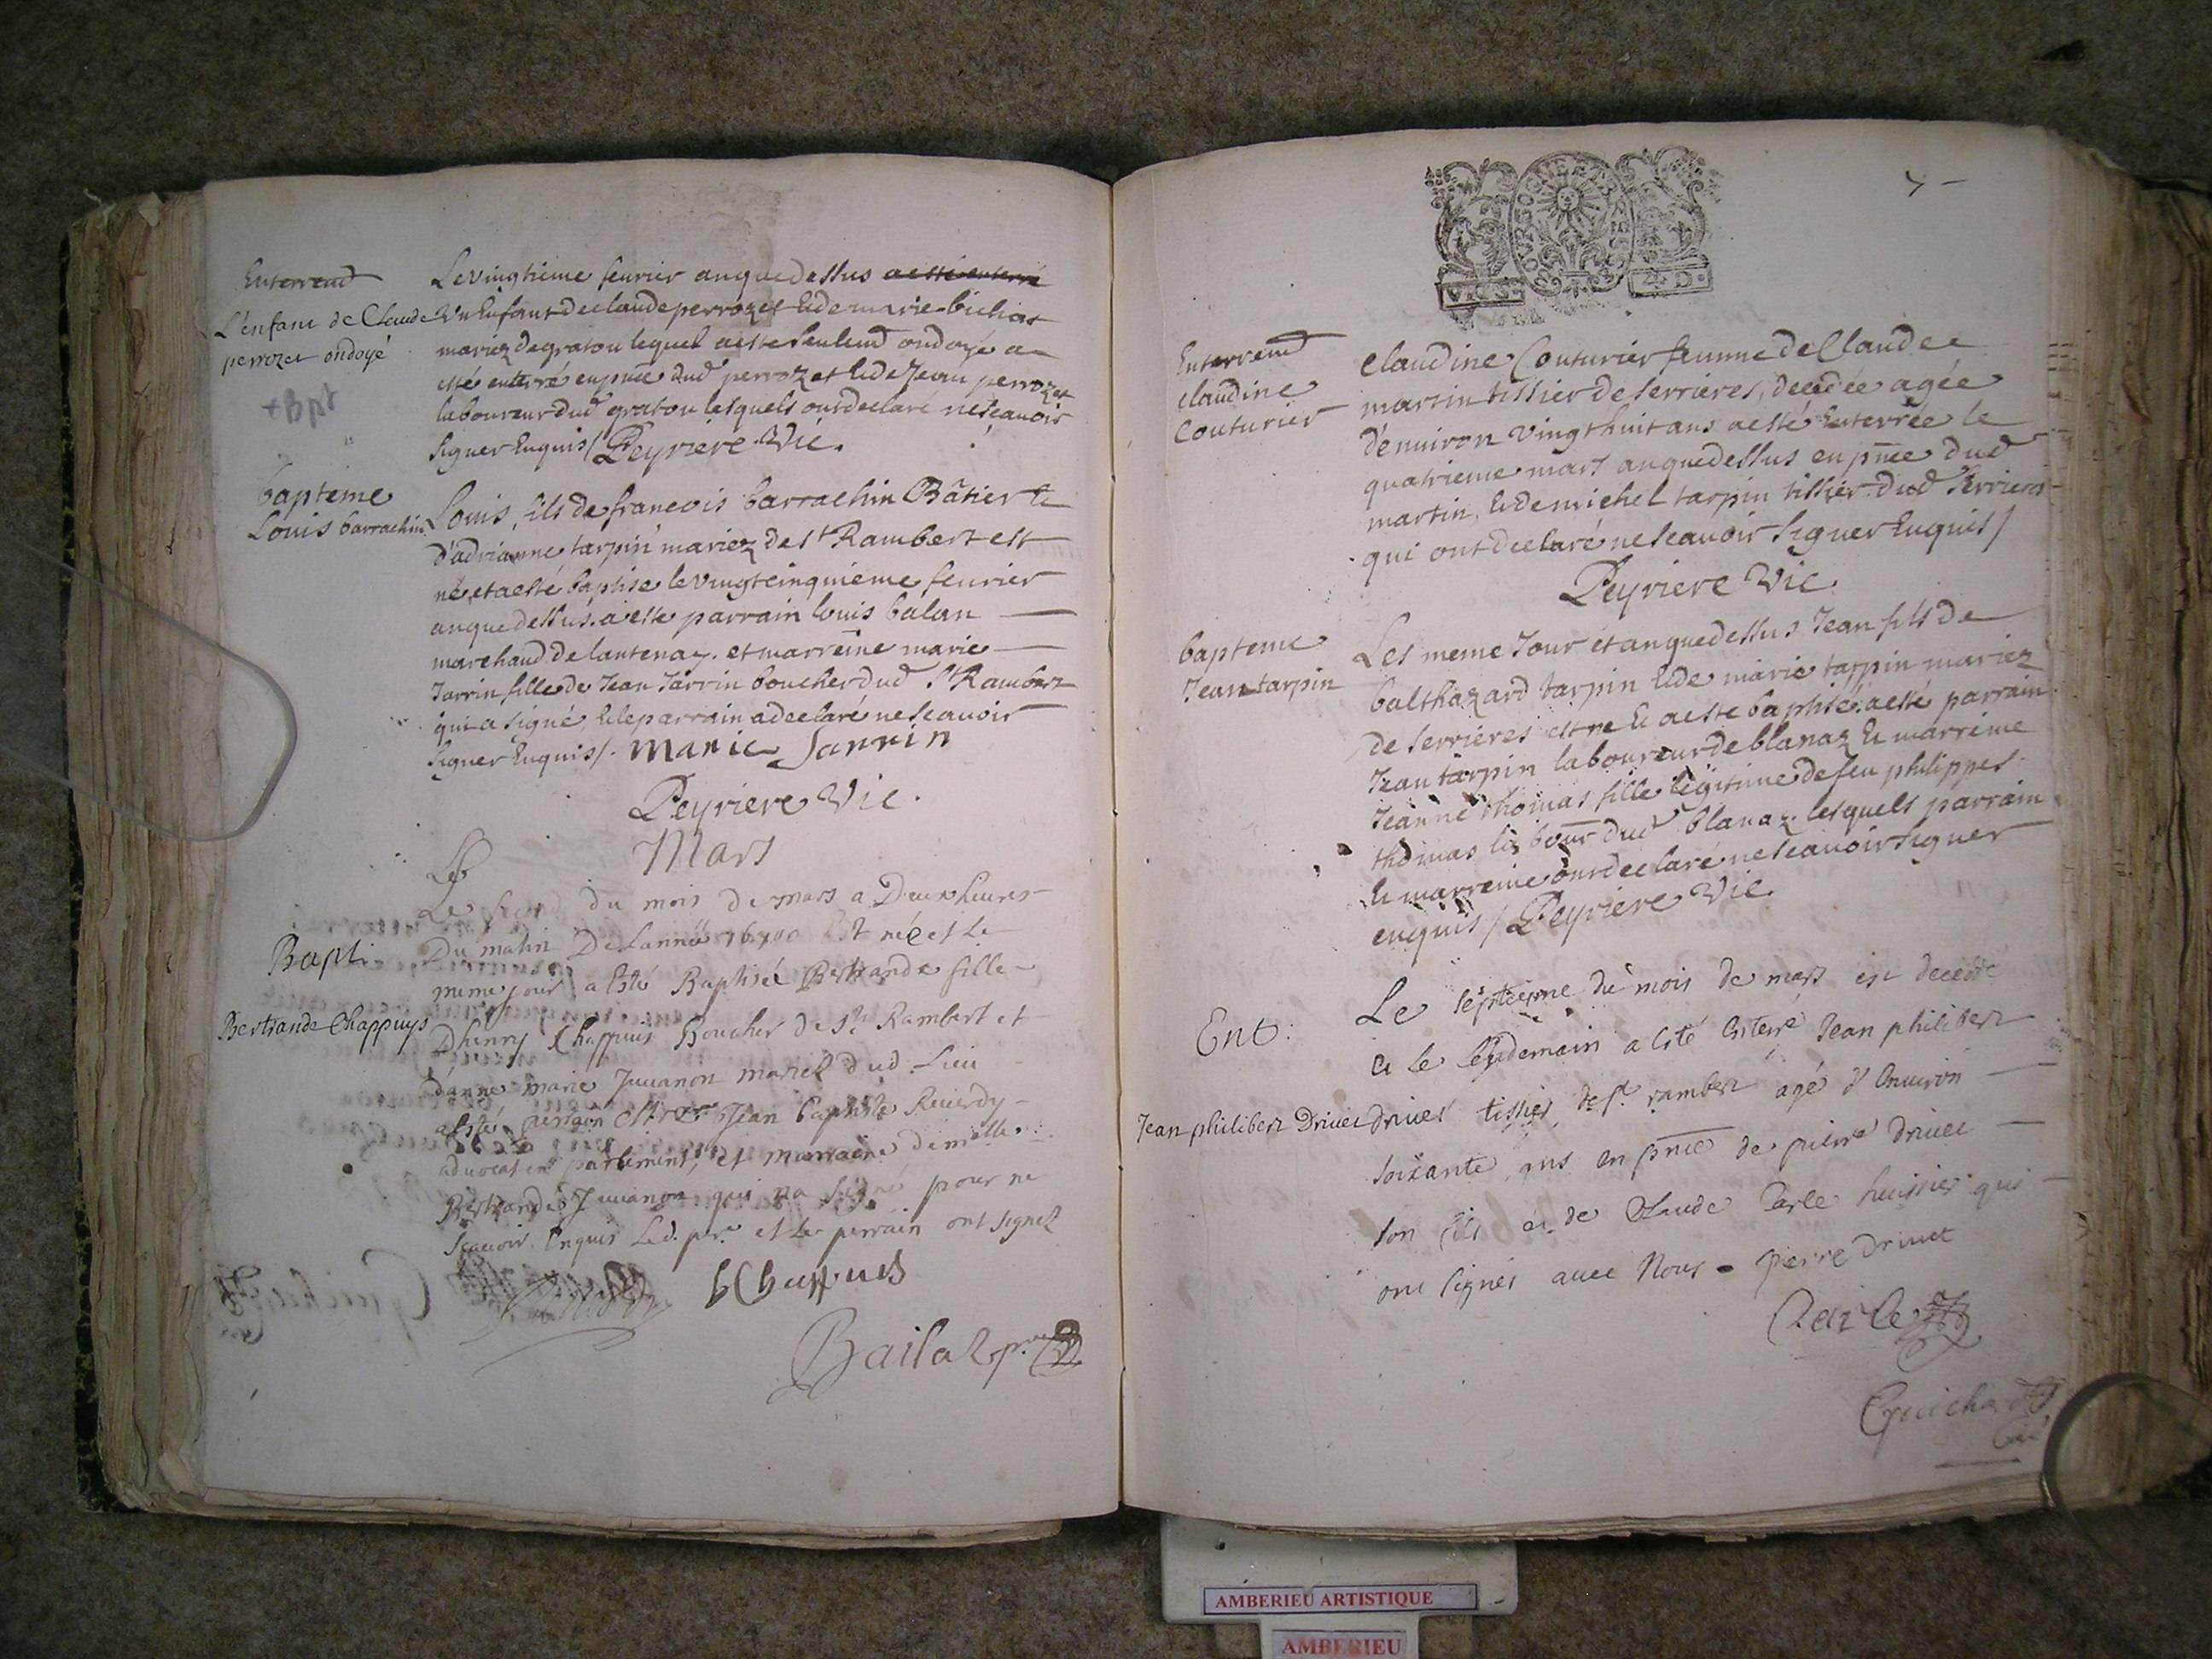 Enterremt
L'enfant de Claude
perrozet ondoyé
+Bpt
Le vingtieme feurier anquedessus a esté enterré
Un Enfant de claude perrozet & de marie bichat
mariez de gratou lequel a este seulemt ondoyé a
esté enterré en pnce dud perrozet & de Jean perrozet
laboureur dud gratou lesquels ont declaré ne scauoir
signer Enquis / Peyriere Vic.
bapteme
Louis barrachin
Louis, fils de francois barrachin Bâtier &
d'adrianne tarpin mariez de st Rambert est
né, et a esté baptise le vingtcinquieme feurier
anquedessus. a este parrain louis balan
marchand de lantenay. et marreine marie
Jarrin fille de Jean Jarrin boucher dud st Rambert
qui a signé, & le parrain a declaré ne scauoir
signer Enquis /. Marie Jarrin
Peyriere Vic.
Mars
Le
Bapt.
Bertrande Chappuys
Le second du mois de mars a Deux heures
Du matin De Lannée 1700 Est née et le
meme jour a Esté Baptisée Bertrande fille
Dhenry Chappuis Boucher de St Rambert et
d'anne marie Juuanon mariez dud. Lieu
a Esté perrain Mre Jean Baptiste Reuerdy
aduocat en parlement, et marraine dimelle
Bertrande Juuanon qui na signé pour ne
scauoir Enquis Led. per. et Le perrain ont signez
h Chappuis
Bailat pr.
Enterremt
claudine
Couturier
claudine Couturier femme de Claude
martin tissier de serrieres, decedée agée
d'enuiron vingt huit ans a esté Enterrée le
quatrieme mars anquedessus en pnce dud
martin, & de michel tarpin tissier dud serrieres
qui ont declaré ne scauoir signer Enquis /
Peyriere Vic.
bapteme
Jean tarpin
Les meme Jour et anquedessus Jean fils de
balthazard tarpin & de marie tarpin mariez
de serrieres est ne & a este baptisé. a esté parrain
Jean tarpin laboureur de blanaz & marreine
Jeanne thomas fille legitime de feu philippes
thomas dud blanaz. lesquels parrain
& marreine ont declaré ne scauoir signer
enquis / Peyriere Vic.
Ent:
Jean philibert Driuet
Le septieme du mois de mars est decedé
et le lendemain a esté Enterré Jean philibert
driuet tissier de st rambert agé d'Enuiron
soixante ans en pnce de pierre driuet
son fils et de Claude Carle huissier qui
ont signés auec Nous - pierre driuet
Carle
Guichard
Curé
AMBERIEU ARTISTIQUE
AMBERIEU